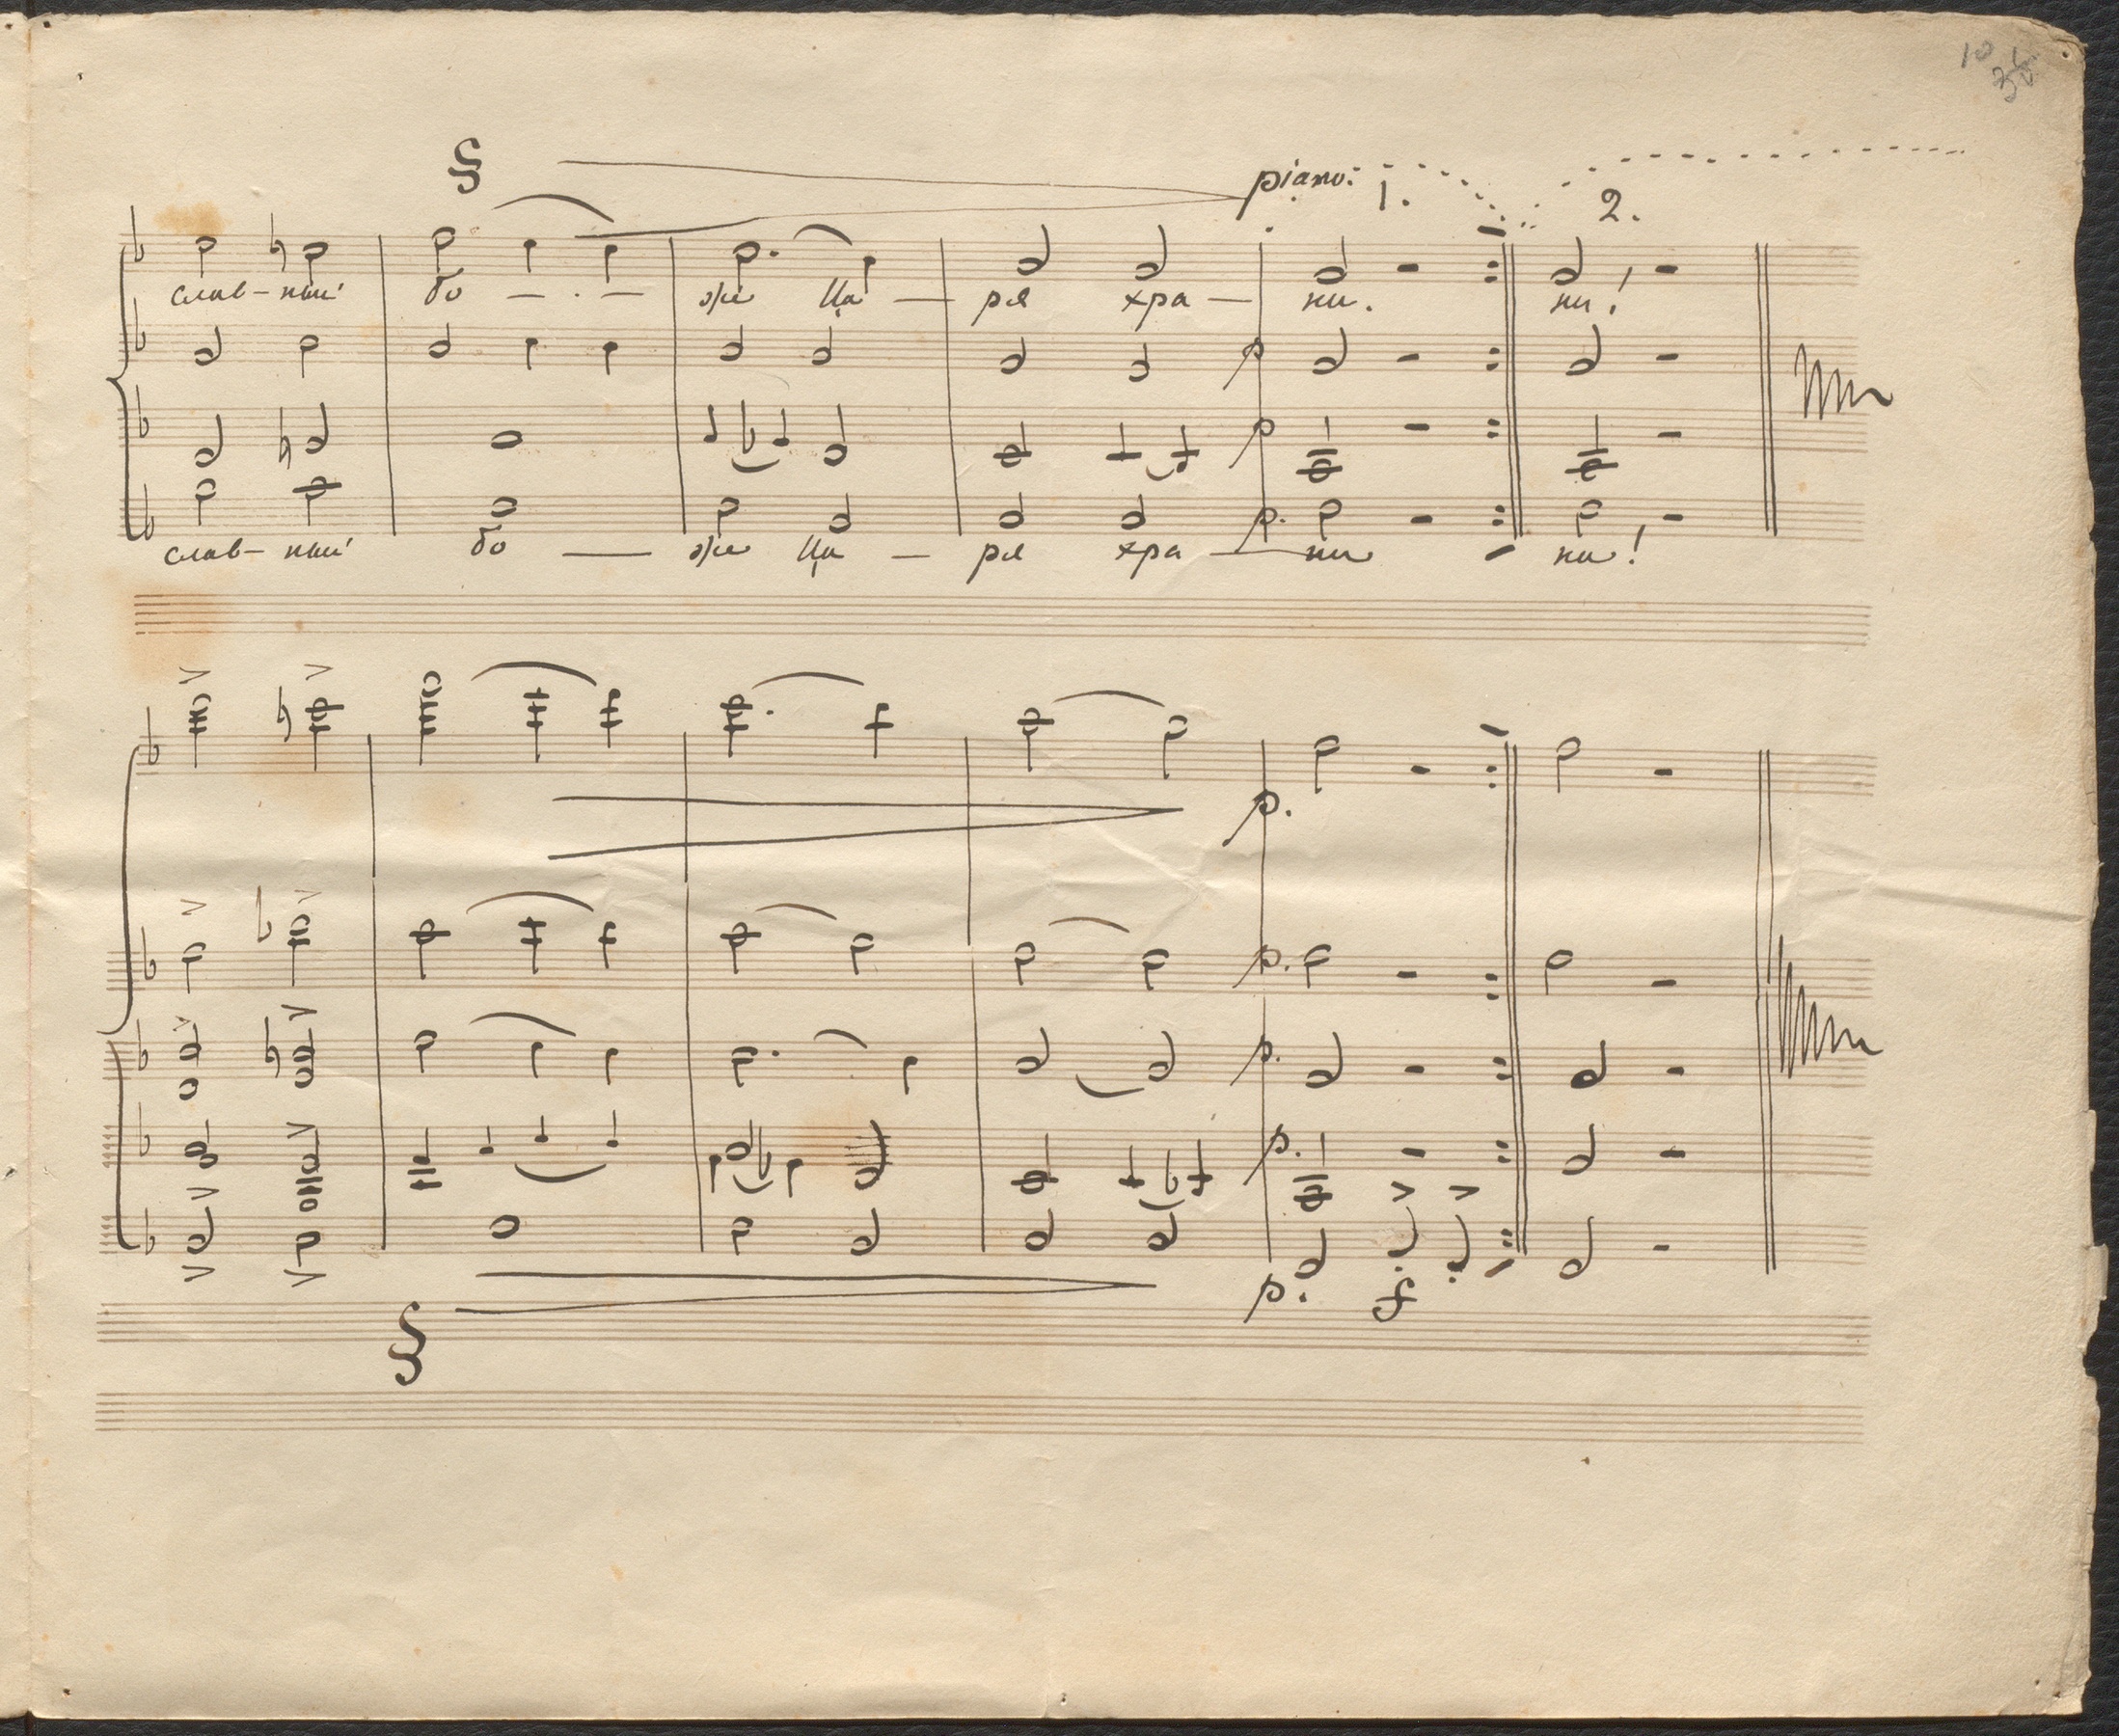 10
piano: 1. 2.
слав-ный бо - - же Ца - ря хра - ни. ни!
p
p
p.
слав-ный бо - же Ца - ря хра - ни ни!
p.
p.
p.
p.
p. f